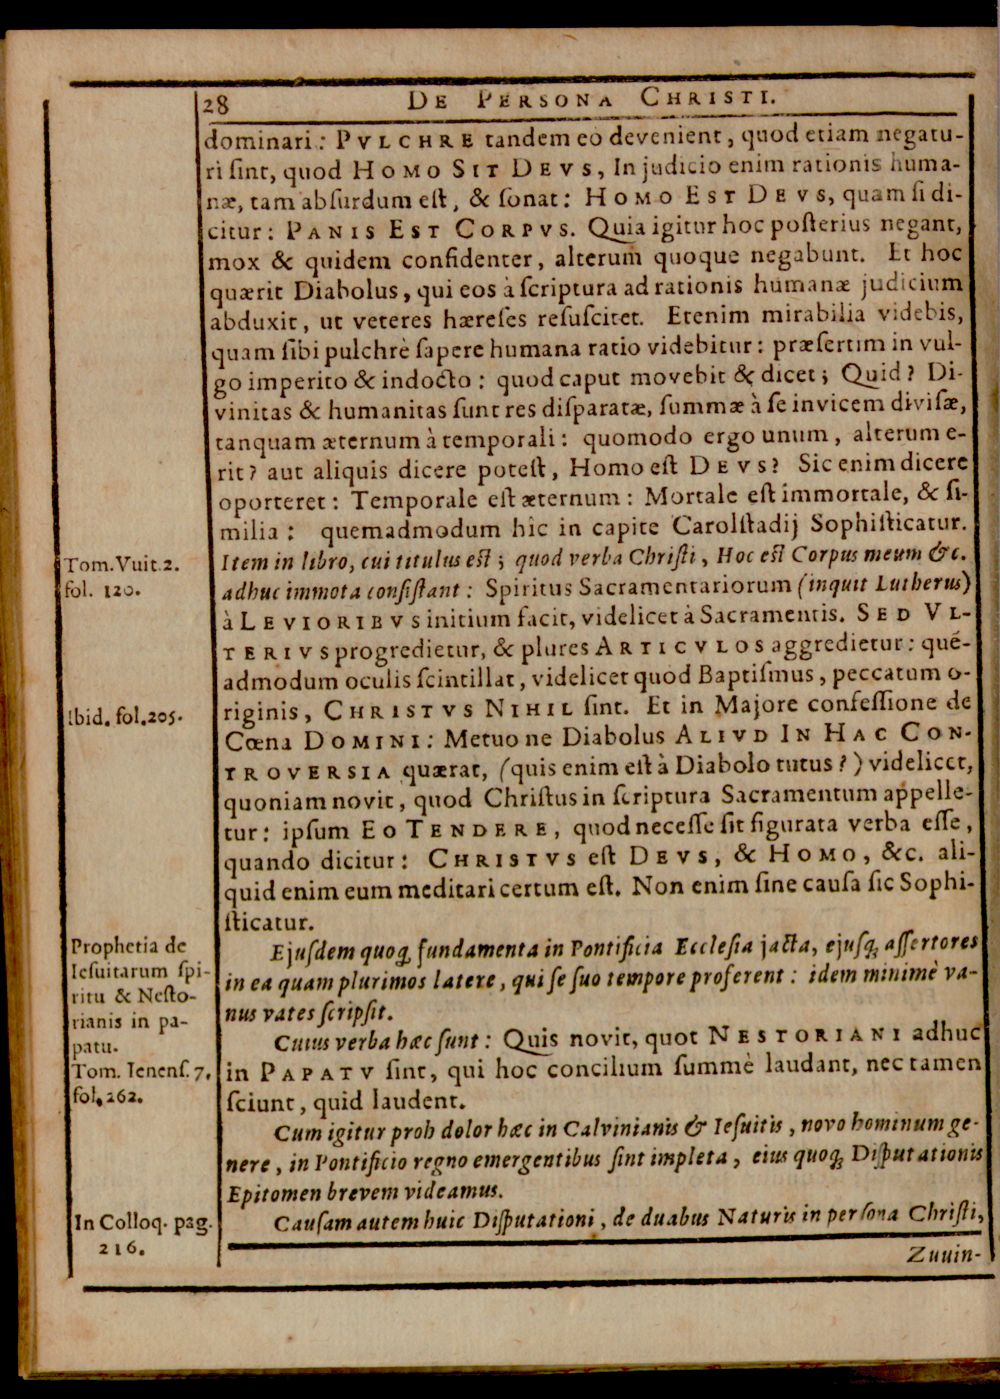 28 DE PERSONA CHRISTI.
dominari: PVLCHRE tandem eò devenient, quod etiam negatu-
ri ſint, quod HOMO SIT DEVS, In judicio enim rationis huma-
næ, tam abſurdum eſt, & ſonat: HOMO EST DEVS, quam ſi di-
citur: PANIS EST CORPVS. Quia igitur hoc poſterius negant,
mox & quidem confidenter, alterum quoque negabunt. Et hoc
quærit Diabolus, qui eos à ſcriptura ad rationis humanæ judicium
abduxit, ut veteres hæreſes reſuſcitet. Etenim mirabilia videbis,
quam ſibi pulchrè ſapere humana ratio videbitur: præſertim in vul-
go imperito & indocto: quod caput movebit & dicet; Quid? Di-
vinitas & humanitas ſunt res diſparatæ, ſummæ à ſe invicem diviſæ,
tanquam æternum à temporali: quomodo ergo unum, alterum e-
rit? aut aliquis dicere poteſt, Homo eſt DEVS? Sic enim dicere
oporteret: Temporale eſt æternum: Mortale eſt immortale, & ſi-
milia: quemadmodum hic in capite Carolſtadij Sophiſticatur.
Tom. Vuit. 2.
fol. 120.
Item in libro, cui titulus eſt; quod verba Chriſti, Hoc eſt Corpus meum &c.
adhuc immota conſiſtant: Spiritus Sacramentariorum (inquit Lutherus)
à LEVIORIBVS initium facit, videlicet à Sacramentis. SED VL-
TERIVS progredietur, & plures ARTICVLOS aggredietur: quē-
admodum oculis ſcintillat, videlicet quod Baptiſmus, peccatum o-
Ibid. fol. 205.
riginis, CHRISTVS NIHIL ſint. Et in Majore confeſſione de
Cœna DOMINI: Metuo ne Diabolus ALIVD IN HAC CON-
TROVERSIA quærat, (quis enim eſt à Diabolo tutus?) videlicet,
quoniam novit, quod Chriſtus in ſcriptura Sacramentum appelle-
tur: ipſum EO TENDERE, quod neceſſe ſit figurata verba eſſe,
quando dicitur: CHRISTVS eſt DEVS, & HOMO, &c. ali-
quid enim eum meditari certum eſt. Non enim ſine cauſa ſic Sophi-
ſticatur.
Prophetia de
Ieſuitarum ſpi-
ritu & Neſto-
rianis in pa-
patu.
Tom. Ienenſ. 7.
fol. 262.
Ejuſdem quoq; fundamenta in Pontificia Eccleſia jacta, ejuſq; aſſertores
in ea quam plurimos latere, qui ſe ſuo tempore proferent: idem minimè va-
nus vates ſcripſit.
Cuius verba hæc ſunt: Quis novit, quot NESTORIANI adhuc
in PAPATV ſint, qui hoc concilium ſummè laudant, nec tamen
ſciunt, quid laudent.
Cum igitur proh dolor hæc in Calvinianis & Ieſuitis, novo hominum ge-
nere, in Pontificio regno emergentibus ſint impleta, eius quoq; Diſputationis
Epitomen brevem videamus.
In Colloq. pag.
216.
Cauſam autem huic Diſputationi, de duabus Naturis in perſona Chriſti,
Zuuin-